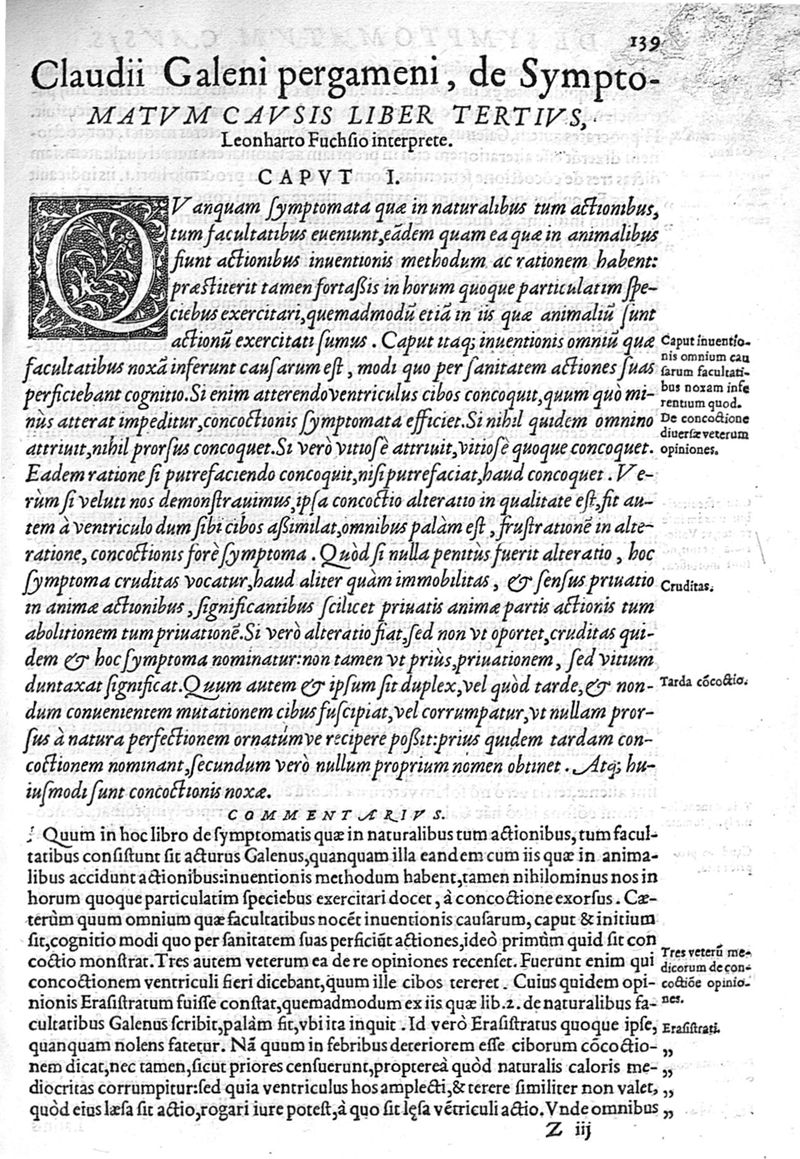 139
Claudii Galeni pergameni, de Sympto-
MATVM CAVSIS LIBER TERTIVS,
Leonharto Fuchsio interprete.
CAPVT I.
QVanquam ſymptomata quæ in naturalibus tum actionibus,
tum facultatibus eueniunt,eãdem quam ea quæ in animalibus
fiunt actionibus inuentionis methodum ac rationem habent:
præſtiterit tamen fortaßis in horum quoque particulatim ſpe-
ciebus exercitari,quemadmodũ etiã in iis quæ animaliũ ſunt
actionũ exercitati ſumus. Caput itaq; inuentionis omniũ quæ
facultatibus noxã inferunt cauſarum eſt, modi quo per ſanitatem actiones ſuas
perficiebant cognitio.Si enim atterendo ventriculus cibos concoquit,quum quò mi-
nùs atterat impeditur,concoctionis ſymptomata efficiet.Si nihil quidem omnino
attriuit,nihil prorſus concoquet.Si verò vitioſè attriuit,vitioſè quoque concoquet.
Eadem ratione ſi putrefaciendo concoquit,niſi putrefaciat,haud concoquet. Ve-
rùm ſi veluti nos demonſtrauimus,ipſa concoctio alteratio in qualitate eſt,fit au-
tem à ventriculo dum ſibi cibos aßimilat,omnibus palàm eſt, fruſtrationẽ in alte-
ratione, concoctionis forè ſymptoma. Quòd ſi nulla penitùs fuerit alteratio, hoc
ſymptoma cruditas vocatur,haud aliter quàm immobilitas, & ſenſus priuatio
in animæ actionibus, ſignificantibus ſcilicet priuatis animæ partis actionis tum
abolitionem tum priuationẽ.Si verò alteratio fiat,ſed non vt oportet,cruditas qui-
dem & hoc ſymptoma nominatur:non tamen vt priùs,priuationem, ſed vitium
duntaxat ſignificat.Quum autem & ipſum ſit duplex,vel quòd tarde,& non-
dum conuenientem mutationem cibus ſuſcipiat,vel corrumpatur,vt nullam pror-
ſus à natura perfectionem ornatúmve recipere poßit:prius quidem tardam con-
coctionem nominant,ſecundum verò nullum proprium nomen obtinet. Atq; hu-
iuſmodi ſunt concoctionis noxæ.
Caput inuentio-
nis omnium cau
ſarum facultati-
bus noxam infe
rentium quod.
De concoctione
diuerſæ veterum
opiniones.
Cruditas.
Tarda cõcoctio.
COMMENTARIVS.
Quum in hoc libro de ſymptomatis quæ in naturalibus tum actionibus, tum facul-
tatibus conſiſtunt ſit acturus Galenus,quanquam illa eandem cum iis quæ in anima-
libus accidunt actionibus:inuentionis methodum habent,tamen nihilominus nos in
horum quoque particulatim ſpeciebus exercitari docet, à concoctione exorſus. Cæ-
terùm quum omnium quæ facultatibus nocẽt inuentionis cauſarum, caput & initium
ſit,cognitio modi quo per ſanitatem ſuas perficiũt actiones,ideò primùm quid ſit con
coctio monſtrat.Tres autem veterum ea de re opiniones recenſet. Fuerunt enim qui
concoctionem ventriculi fieri dicebant,quum ille cibos tereret. Cuius quidem opi-
nionis Eraſiſtratum fuiſſe conſtat,quemadmodum ex iis quæ lib.2. de naturalibus fa-
cultatibus Galenus ſcribit,palàm fit,vbi ita inquit. Id verò Eraſiſtratus quoque ipſe,
quanquam nolens fatetur. Nã quum in febribus deteriorem eſſe ciborum cõcoctio- „
nem dicat,nec tamen,ſicut priores cenſuerunt,propterea quòd naturalis caloris me- „
diocritas corrumpitur:ſed quia ventriculus hos amplecti,& terere ſimiliter non valet, „
quòd eius læſa ſit actio,rogari iure poteſt,à quo ſit lęſa vẽtriculi actio.Vnde omnibus „
Tres veterũ me-
dicorum de con-
coctiõe opinio-
nes.
Eraſiſtrati.
Z iij